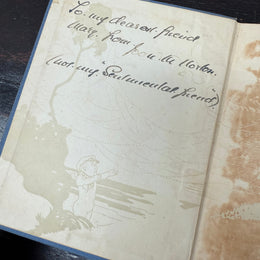 To my dearest friend
Mary from M Norton.
(not my "Sentimental friend")